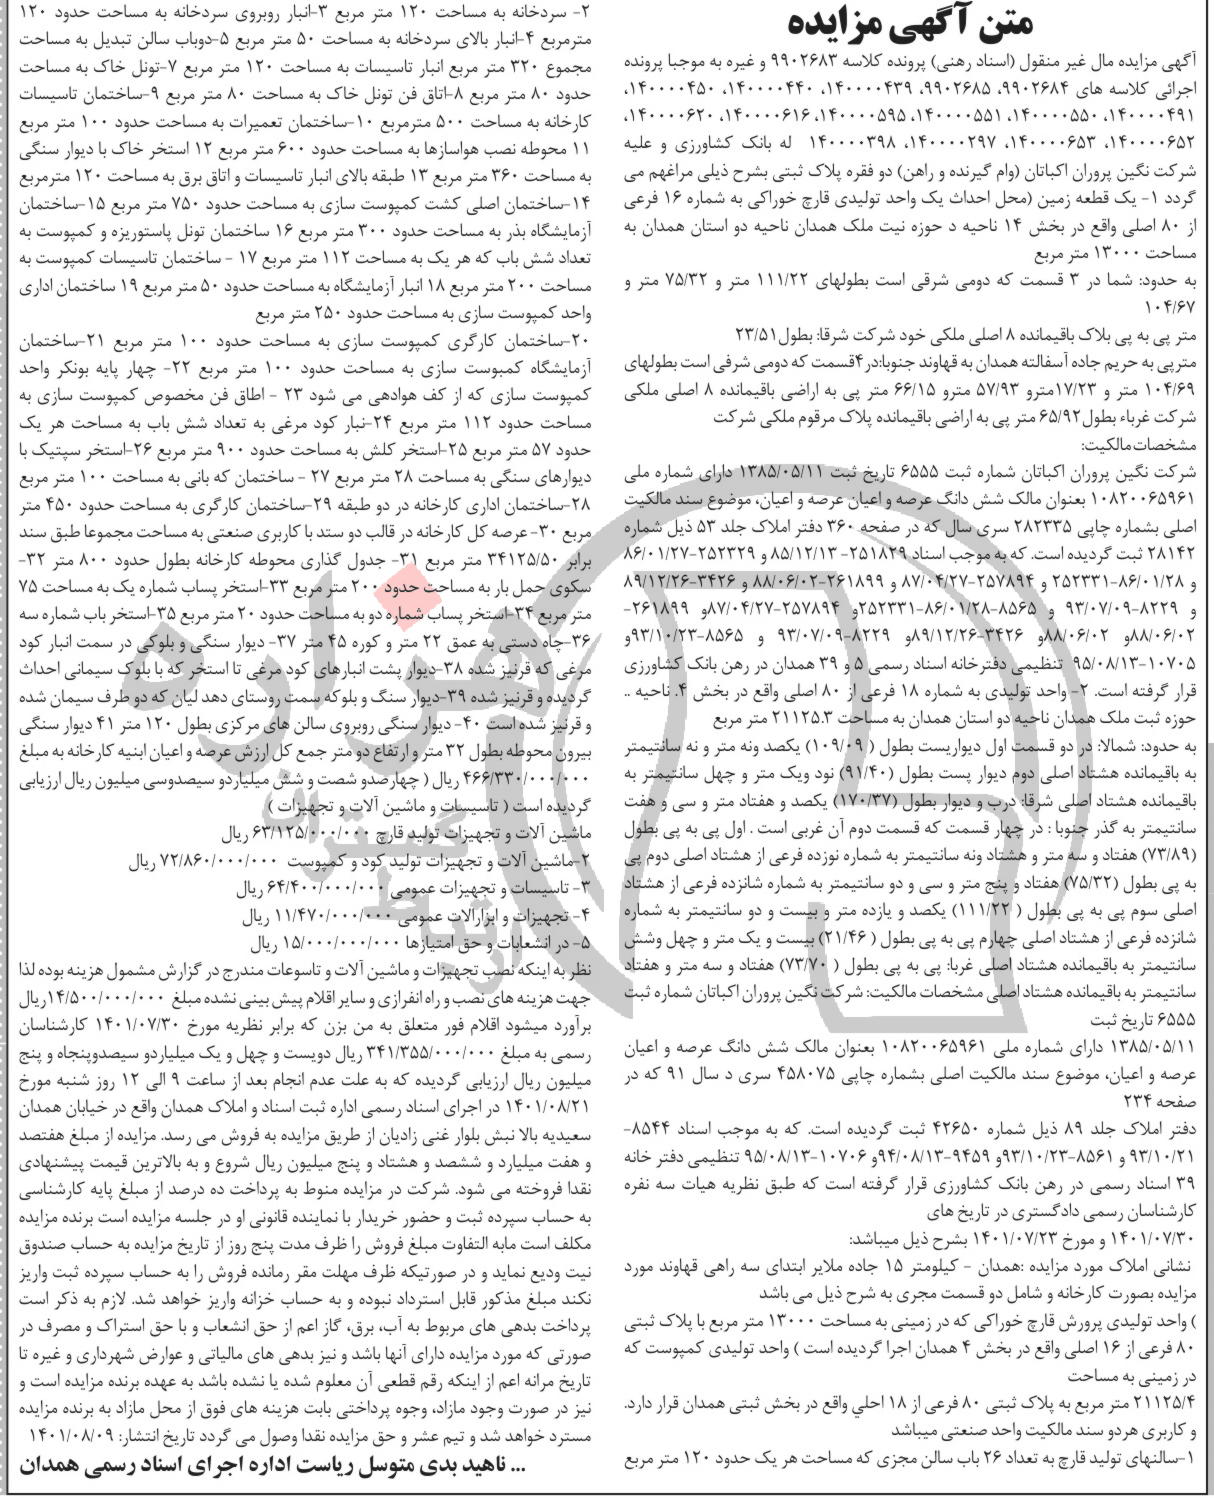 متن آگهی مزایده
آگهی مزایده مال غیر منقول (اسناد رهنی) پرونده کلاسه ۹۹۰۲۶۸۳ و غیره به موجبا پرونده
اجرائی کلاسه های ۹۹۰۲۶۸۴، ۹۹۰۲۶۸۵، ۱۴۰۰۰۰۴۳۹، ۱۴۰۰۰۰۴۴۰، ۱۴۰۰۰۰۴۵۰،
۱۴۰۰۰۰۴۹۱، ۱۴۰۰۰۰۵۵۰، ۱۴۰۰۰۰۵۵۱، ۱۴۰۰۰۰۵۹۵، ۱۴۰۰۰۰۶۱۶، ۱۴۰۰۰۰۶۲۰،
۱۴۰۰۰۰۶۵۲، ۱۴۰۰۰۰۶۵۳، ۱۴۰۰۰۰۲۹۷، ۱۴۰۰۰۰۳۹۸ له بانک کشاورزی و علیه
شرکت نگین پروران اکباتان (وام گیرنده و راهن) دو فقره پلاک ثبتی بشرح ذیلی مراغهم می
گردد ۱- یک قطعه زمین (محل احداث یک واحد تولیدی قارچ خوراکی به شماره ۱۶ فرعی
از ۸۰ اصلی واقع در بخش ۱۴ ناحیه د حوزه نیت ملک همدان ناحیه دو استان همدان به
مساحت ۱۳۰۰۰ متر مربع
به حدود: شما در ۳ قسمت که دومی شرقی است بطولهای ۱۱۱/۲۲ متر و ۷۵/۳۲ متر و
۱۰۴/۶۷
متر پی به پی بلاک باقیمانده ۸ اصلی ملکی خود شرکت شرقا: بطول۲۳/۵۱
مترپی به حریم جاده آسفالته همدان به قهاوند جنوبا:در۴قسمت که دومی شرفی است بطولهای
۱۰۴/۶۹ متر و ۱۷/۲۳مترو ۵۷/۹۳ مترو ۶۶/۱۵ متر پی به اراضی باقیمانده ۸ اصلی ملکی
شرکت غرباء بطول۶۵/۹۲ متر پی به اراضی باقیمانده پلاک مرقوم ملکی شرکت
مشخصات مالکیت:
شرکت نگین پروران اکباتان شماره ثبت ۶۵۵۵ تاریخ ثبت ۱۳۸۵/۰۵/۱۱ دارای شماره ملی
۱۰۸۲۰۰۶۵۹۶۱ بعنوان مالک شش دانگ عرصه و اعیان عرصه و اعیان، موضوع سند مالکیت
اصلی بشماره چاپی ۲۸۲۳۳۵ سری سال که در صفحه ۳۶۰ دفتر املاک جلد ۵۳ ذیل شماره
۲۸۱۴۲ ثبت گردیده است. که به موجب اسناد ۲۵۱۸۲۹- ۸۵/۱۲/۱۳ و ۲۵۲۳۲۹-۸۶/۰۱/۲۷
و ۸۶/۰۱/۲۸-۲۵۲۳۳۱ و ۲۵۷۸۹۴-۸۷/۰۴/۲۷ و ۲۶۱۸۹۹-۸۸/۰۶/۰۲ و ۳۴۲۶-۸۹/۱۲/۲۶
و ۸۲۲۹-۹۳/۰۷/۰۹ و ۸۵۶۵-۸۶/۰۱/۲۸-۲۵۲۳۳۱و ۲۵۷۸۹۴-۸۷/۰۴/۲۷و ۲۶۱۸۹۹-
۸۸/۰۶/۰۲و ۸۸/۰۶/۰۲و ۳۴۲۶-۸۹/۱۲/۲۶و ۸۲۲۹-۹۳/۰۷/۰۹ و ۸۵۶۵-۹۳/۱۰/۲۳و
۱۰۷۰۵-۹۵/۰۸/۱۳ تنظیمی دفترخانه اسناد رسمی ۵ و ۳۹ همدان در رهن بانک کشاورزی
قرار گرفته است. ۲- واحد تولیدی به شماره ۱۸ فرعی از ۸۰ اصلی واقع در بخش ۴. ناحیه ..
حوزه ثبت ملک همدان ناحیه دو استان همدان به مساحت ۲۱۱۲۵.۳ متر مربع
به حدود: شمالا: در دو قسمت اول دیواریست بطول (۱۰۹/۰۹) یکصد ونه متر و نه سانتیمتر
به باقیمانده هشتاد اصلی دوم دیوار پست بطول (۹۱/۴۰) نود ویک متر و چهل سانتیمتر به
باقیمانده هشتاد اصلی شرقا: درب و دیوار بطول (۱۷۰/۳۷) یکصد و هفتاد متر و سی و هفت
سانتیمتر به گذر جنوبا : در چهار قسمت که قسمت دوم آن غربی است . اول پی به پی بطول
(۷۳/۸۹) هفتاد و سه متر و هشتاد ونه سانتیمتر به شماره نوزده فرعی از هشتاد اصلی دوم پی
به پی بطول (۷۵/۳۲) هفتاد و پنج متر و سی و دو سانتیمتر به شماره شانزده فرعی از هشتاد
اصلی سوم پی به پی بطول ( ۱۱۱/۲۲) یکصد و یازده متر و بیست و دو سانتیمتر به شماره
شانزده فرعی از هشتاد اصلی چهارم پی به پی بطول (۲۱/۴۶) بیست و یک متر و چهل وشش
سانتیمتر به باقیمانده هشتاد اصلی غربا: پی به پی بطول ( ۷۳/۷۰) هفتاد و سه متر و هفتاد
سانتیمتر به باقیمانده هشتاد اصلی مشخصات مالکیت: شرکت نگین پروران اکباتان شماره ثبت
۶۵۵۵ تاریخ ثبت
۱۳۸۵/۰۵/۱۱ دارای شماره ملی ۱۰۸۲۰۰۶۵۹۶۱ بعنوان مالک شش دانگ عرصه و اعیان
عرصه و اعیان، موضوع سند مالکیت اصلی بشماره چاپی ۴۵۸۰۷۵ سری د سال ۹۱ که در
صفحه ۲۳۴
دفتر املاک جلد ۸۹ ذیل شماره ۴۲۶۵۰ ثبت گردیده است. که به موجب اسناد ۸۵۴۴-
۹۳/۱۰/۲۱ و ۸۵۶۱-۹۳/۱۰/۲۳و ۹۴۵۹-۹۴/۰۸/۱۳و ۱۰۷۰۶-۹۵/۰۸/۱۳ تنظیمی دفتر خانه
۳۹ اسناد رسمی در رهن بانک کشاورزی قرار گرفته است که طبق نظریه هیات سه نفره
کارشناسان رسمی دادگستری در تاریخ های
۱۴۰۱/۰۷/۳۰ و مورخ ۱۴۰۱/۰۷/۲۳ بشرح ذیل میباشد:
نشانی املاک مورد مزایده :همدان - کیلومتر ۱۵ جاده ملایر ابتدای سه راهی قهاوند مورد
مزایده بصورت کارخانه و شامل دو قسمت مجری به شرح ذیل می باشد
) واحد تولیدی پرورش قارچ خوراکی که در زمینی به مساحت ۱۳۰۰۰ متر مربع با پلاک ثبتی
۸۰ فرعی از ۱۶ اصلی واقع در بخش ۴ همدان اجرا گردیده است ) واحد تولیدی کمپوست که
در زمینی به مساحت
۲۱۱۲۵/۴ متر مربع به پلاک ثبتی ۸۰ فرعی از ۱۸ احلي واقع در بخش ثبتی همدان قرار دارد.
و کاربری هردو سند مالکیت واحد صنعتی میباشد
۱-سالنهای تولید قارچ به تعداد ۲۶ باب سالن مجزی که مساحت هر یک حدود ۱۲۰ متر مربع
۲- سردخانه به مساحت ۱۲۰ متر مربع ۳-انبار روبروی سردخانه به مساحت حدود ۱۲۰
مترمربع ۴-انبار بالای سردخانه به مساحت ۵۰ متر مربع ۵-دوباب سالن تبدیل به مساحت
مجموع ۳۲۰ متر مربع انبار تاسیسات به مساحت ۱۲۰ متر مربع ۷-تونل خاک به مساحت
حدود ۸۰ متر مربع ۸-اتاق فن تونل خاک به مساحت ۸۰ متر مربع ۹-ساختمان تاسیسات
کارخانه به مساحت ۵۰۰ مترمربع ۱۰-ساختمان تعمیرات به مساحت حدود ۱۰۰ متر مربع
۱۱ محوطه نصب هواسازها به مساحت حدود ۶۰۰ متر مربع ۱۲ استخر خاک با دیوار سنگی
به مساحت ۳۶۰ متر مربع ۱۳ طبقه بالای انبار تاسیسات و اتاق برق به مساحت ۱۲۰ مترمربع
۱۴-ساختمان اصلی کشت کمپوست سازی به مساحت حدود ۷۵۰ متر مربع ۱۵-ساختمان
آزمایشگاه بذر به مساحت حدود ۳۰۰ متر مربع ۱۶ ساختمان تونل پاستوریزه و کمپوست به
تعداد شش باب که هر یک به مساحت ۱۱۲ متر مربع ۱۷ - ساختمان تاسیسات کمپوست به
مساحت ۲۰۰ متر مربع ۱۸ انبار آزمایشگاه به مساحت حدود ۵۰ متر مربع ۱۹ ساختمان اداری
واحد کمپوست سازی به مساحت حدود ۲۵۰ متر مربع
۲۰-ساختمان کارگری کمپوست سازی به مساحت حدود ۱۰۰ متر مربع ۲۱-ساختمان
آزمایشگاه کمبوست سازی به مساحت حدود ۱۰۰ متر مربع ۲۲- چهار پایه بونکر واحد
کمپوست سازی که از کف هوادهی می شود ۲۳ - اطاق فن مخصوص کمپوست سازی به
مساحت حدود ۱۱۲ متر مربع ۲۴-نبار کود مرغی به تعداد شش باب به مساحت هر یک
حدود ۵۷ متر مربع ۲۵-استخر کلش به مساحت حدود ۹۰۰ متر مربع ۲۶-استخر سپتیک با
دیوارهای سنگی به مساحت ۲۸ متر مربع ۲۷ - ساختمان که بانی به مساحت ۱۰۰ متر مربع
۲۸-ساختمان اداری کارخانه در دو طبقه ۲۹-ساختمان کارگری به مساحت حدود ۴۵۰ متر
مربع ۳۰-عرصه کل کارخانه در قالب دو ستد با کاربری صنعتی به مساحت مجموعا طبق سند
برابر ۳۴۱۲۵/۵۰ متر مربع ۳۱- جدول گذاری محوطه کارخانه بطول حدود ۸۰۰ متر ۳۲-
سکوی حمل بار به مساحت حدود ۲۰۰ متر مربع ۳۳-استخر پساب شماره یک به مساحت ۷۵
متر مربع ۳۴-استخر پساب شماره دو به مساحت حدود ۲۰ متر مربع ۳۵-استخر باب شماره سه
۳۶-چاه دستی به عمق ۲۲ متر و کوره ۴۵ متر ۳۷- دیوار سنگی و بلوکی در سمت انبار کود
مرغی که قرنیز شده ۳۸-دیوار پشت انبارهای کود مرغی تا استخر که با بلوک سیمانی احداث
گردیده و قرنیز شده ۳۹-دیوار سنگ و بلوکه سمت روستای دهد لیان که دو طرف سیمان شده
و قرنیز شده است ۴۰- دیوار سنگی روبروی سالن های مرکزی بطول ۱۲۰ متر ۴۱ دیوار سنگی
بیرون محوطه بطول ۳۲ متر و ارتفاع دو متر جمع کل ارزش عرصه و اعیان ابنیه کارخانه به مبلغ
۴۶۶/۳۳۰/۰۰۰/۰۰۰ ریال ( چهارصدو شصت و شش میلیاردو سیصدوسی میلیون ریال ارزیابی
گردیده است ( تاسیسات و ماشین آلات و تجهیزات )
ماشین آلات و تجهیزات تولید قارچ ۶۳/۱۲۵/۰۰۰/۰۰۰ ریال
۲-ماشین آلات و تجهیزات تولید کود و کمپوست ۷۲/۸۶۰/۰۰۰/۰۰۰ ریال
۳- تاسیسات و تجهیزات عمومی ۶۴/۴۰۰/۰۰۰/۰۰۰ ریال
۴- تجهیزات و ابزارالات عمومی ۱۱/۴۷۰/۰۰۰/۰۰۰ ریال
۵- در انشعابات و حق امتیازها ۱۵/۰۰۰/۰۰۰/۰۰۰ ریال
نظر به اینکه نصب تجهیزات و ماشین آلات و تاسوعات مندرج در گزارش مشمول هزینه بوده لذا
جهت هزینه های نصب و راه انفرازی و سایر اقلام پیش بینی نشده مبلغ ۱۴/۵۰۰/۰۰۰/۰۰۰ریال
برآورد میشود اقلام فور متعلق به من بزن که برابر نظریه مورخ ۱۴۰۱/۰۷/۳۰ کارشناسان
رسمی به مبلغ ۳۴۱/۳۵۵/۰۰۰/۰۰۰ ریال دویست و چهل و یک میلیاردو سیصدوپنجاه و پنج
میلیون ریال ارزیابی گردیده که به علت عدم انجام بعد از ساعت ۹ الی ۱۲ روز شنبه مورخ
۱۴۰۱/۰۸/۲۱ در اجرای اسناد رسمی اداره ثبت اسناد و املاک همدان واقع در خیابان همدان
سعیدیه بالا نبش بلوار غنی زادیان از طریق مزایده به فروش می رسد. مزایده از مبلغ هفتصد
و هفت میلیارد و ششصد و هشتاد و پنج میلیون ریال شروع و به بالاترین قیمت پیشنهادی
نقدا فروخته می شود. شرکت در مزایده منوط به پرداخت ده درصد از مبلغ پایه کارشناسی
به حساب سپرده ثبت و حضور خریدار با نماینده قانونی او در جلسه مزایده است برنده مزایده
مکلف است مابه التفاوت مبلغ فروش را ظرف مدت پنج روز از تاریخ مزایده به حساب صندوق
نیت ودیع نماید و در صورتیکه ظرف مهلت مقر رمانده فروش را به حساب سپرده ثبت واریز
نکند مبلغ مذکور قابل استرداد نبوده و به حساب خزانه واریز خواهد شد. لازم به ذکر است
پرداخت بدهی های مربوط به آب، برق، گاز اعم از حق انشعاب و با حق استراک و مصرف در
صورتی که مورد مزایده دارای آنها باشد و نیز بدهی های مالیاتی و عوارض شهرداری و غیره تا
تاریخ مرانه اعم از اینکه رقم قطعی آن معلوم شده یا نشده باشد به عهده برنده مزایده است و
نیز در صورت وجود مازاد، وجوه پرداختی بابت هزینه های فوق از محل مازاد به برنده مزایده
مسترد خواهد شد و تیم عشر و حق مزایده نقدا وصول می گردد تاریخ انتشار: ۱۴۰۱/۰۸/۰۹
... ناهید بدی متوسل ریاست اداره اجرای اسناد رسمی همدان